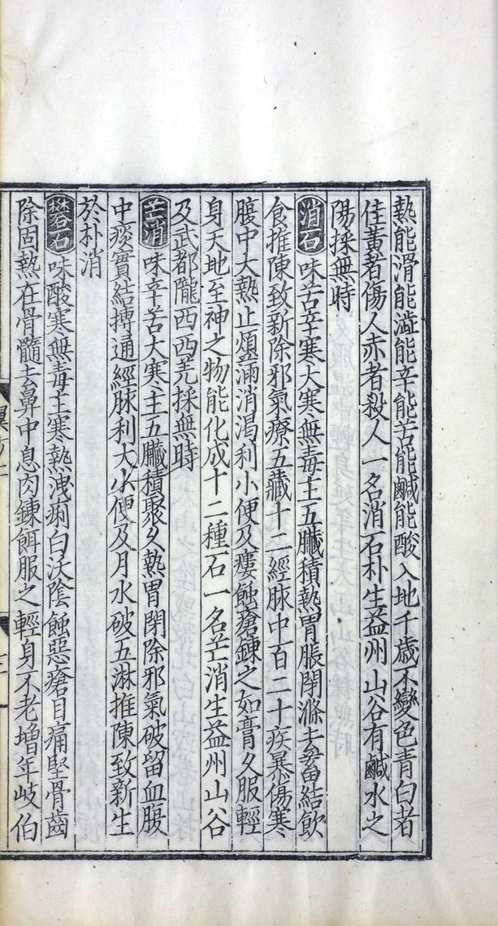 熱能滑能澁能辛能苦能鹹能酸入地千歳不變色青白者
佳黃者傷人赤者殺人一名消石朴生益州山谷有鹹水之
陽採無時
消石味苦辛寒大寒無毒主五臟積熱胃脹閉滌去蓄結飲
食推陳致新除邪氣療五藏十二經脉中百二十疾暴傷寒
腹中大熱止煩滿消渴利小便及瘻蝕瘡鍊之如膏久服輕
身天地至神之物能化成十二種石一名芒消生益州山谷
及武都隴西西羌採無時
芒消味辛苦大寒主五臟積聚久熱胃閉除邪氣破留血腹
中痰實結搏通經脉利大小便及月水破五淋推陳致新生
於朴消
礬石味酸寒無毒主寒熱洩痢白沃陰蝕惡瘡目痛堅骨齒
除固熱在骨髓去鼻中息肉鍊餌服之輕身不老增年岐伯
翼方二